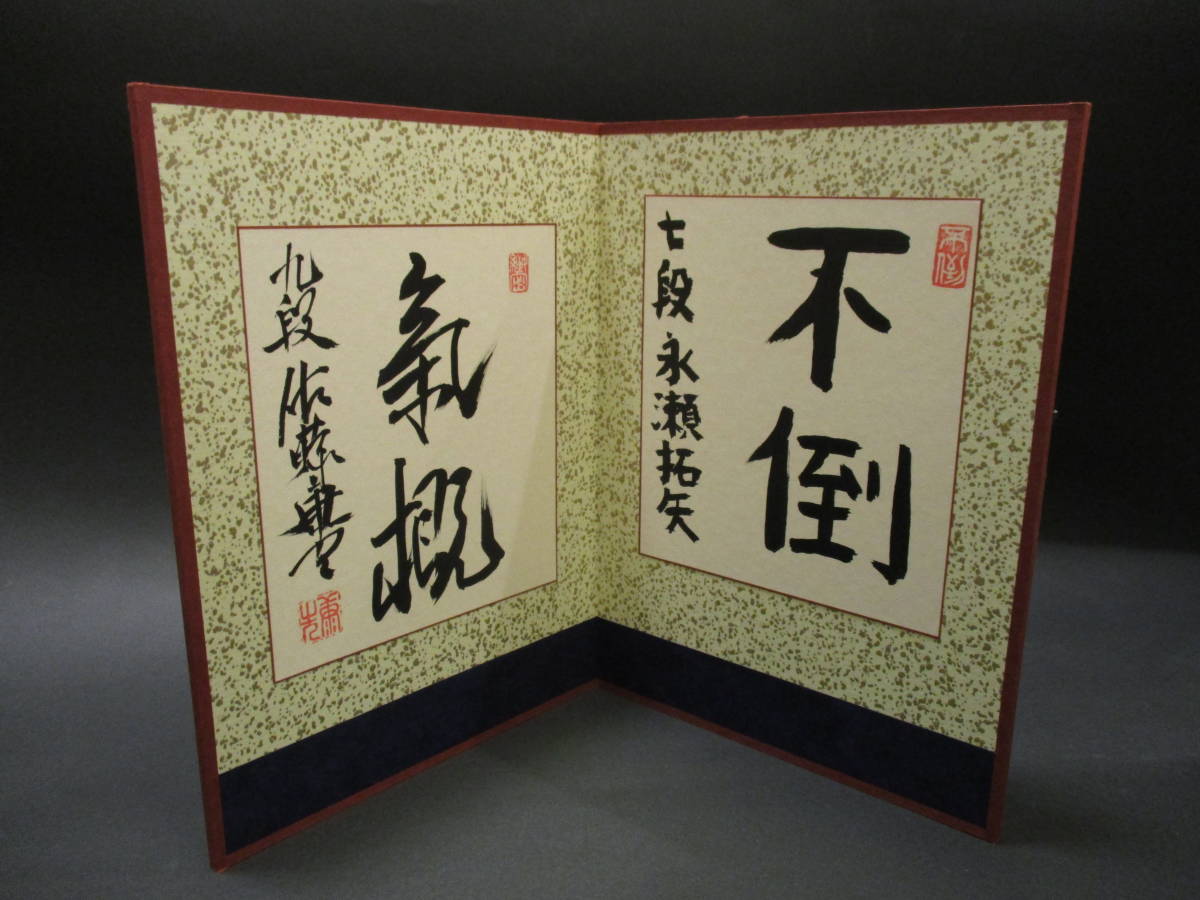 不倒
七段 永瀬拓矢
不倒
氣概
九段 佐藤康光
康光